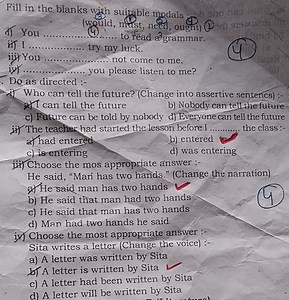 Fill in the blanks with suitable modals
(would, must, need, ought)
i) You ............... to read a grammar.
ii) I ............... try my luck.
iii) You ............... not come to me.
iv) ............... you please listen to me?
Do as directed :-
i) Who can tell the future? (Change into assertive sentence) :-
a) I can tell the future b) Nobody can tell the future
c) Future can be told by nobody d) Everyone can tell the future
ii) The teacher had started the lesson before I .......... the class :-
a) had entered b) entered
c) is entering d) was entering
iii) Choose the mos appropriate answer :-
He said, "Man has two hands." (Change the narration)
a) He said man has two hands
b) He said that man had two hands
c) He said that man has two hands
d) Man had two hands he said
iv) Choose the most appropriate answer :-
Sita writes a letter (Change the voice) :-
a) A letter was written by Sita
b) A letter is written by Sita
c) A letter had been written by Sita
d) A letter will be written by Sita